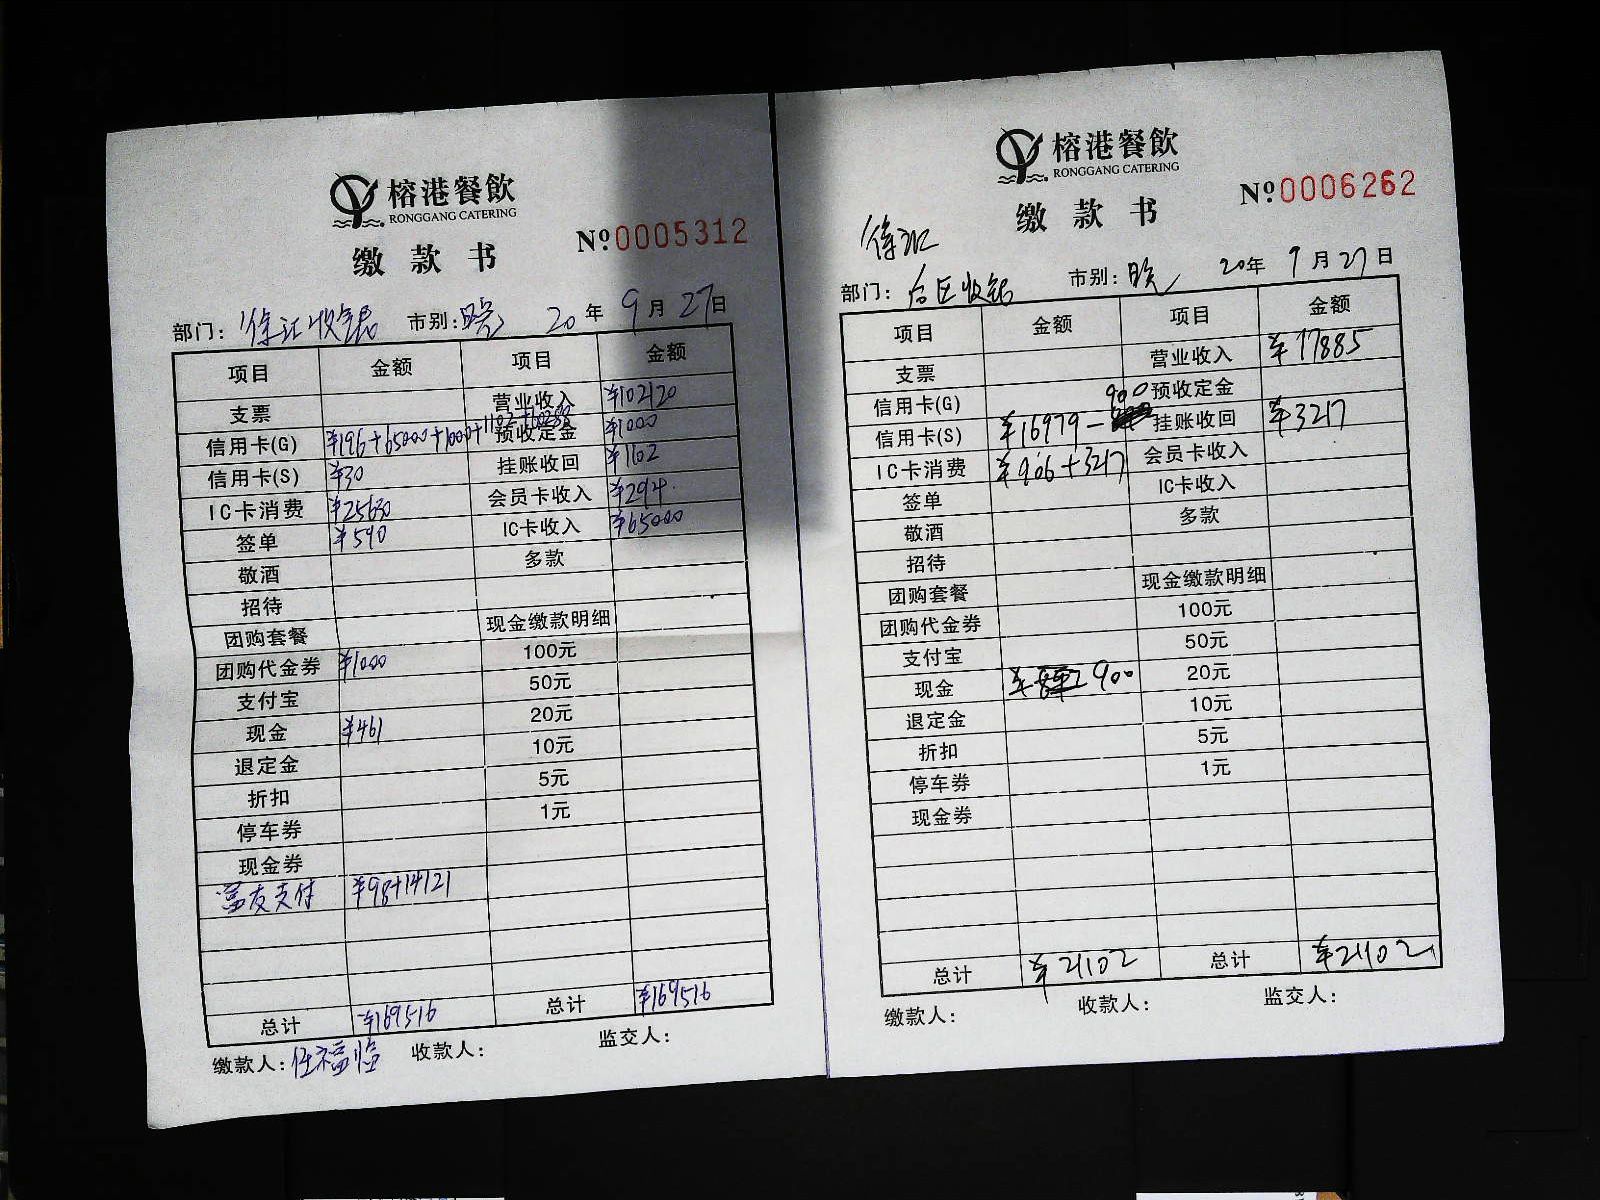 榕港餐飲
RONGGANG CATERING
缴款书
Nº0005312
部门: 徐汇收银 市别: 晚 20年9月27日
项目 金额 项目 金额
支票 营业收入 ¥102120
信用卡(G) ¥196+65000+1000+1102+60288 预收定金 ¥1000
信用卡(S) ¥30 挂账收回 ¥1102
IC卡消费 ¥25630 会员卡收入 ¥294
签单 ¥590 IC卡收入 ¥65000
敬酒 多款
招待
团购套餐 现金缴款明细
团购代金券 ¥1000 100元
支付宝 50元
现金 ¥461 20元
退定金 10元
折扣 5元
停车券 1元
现金券
富友支付 ¥98+14121
总计 ¥169516 总计 ¥169516
缴款人: 任福临 收款人: 监交人:
榕港餐飲
RONGGANG CATERING
缴款书
Nº0006262
徐汇
部门: 后区收银 市别: 晚 20年9月27日
项目 金额 项目 金额
支票 营业收入 ¥17885
信用卡(G) 预收定金
信用卡(S) ¥16979-900 挂账收回 ¥3217
IC卡消费 ¥906+3217 会员卡收入
签单 IC卡收入
敬酒 多款
招待
团购套餐 现金缴款明细
团购代金券 100元
支付宝 50元
现金 ¥900 20元
退定金 10元
折扣 5元
停车券 1元
现金券
总计 ¥21102 总计 ¥21102
缴款人: 收款人: 监交人: